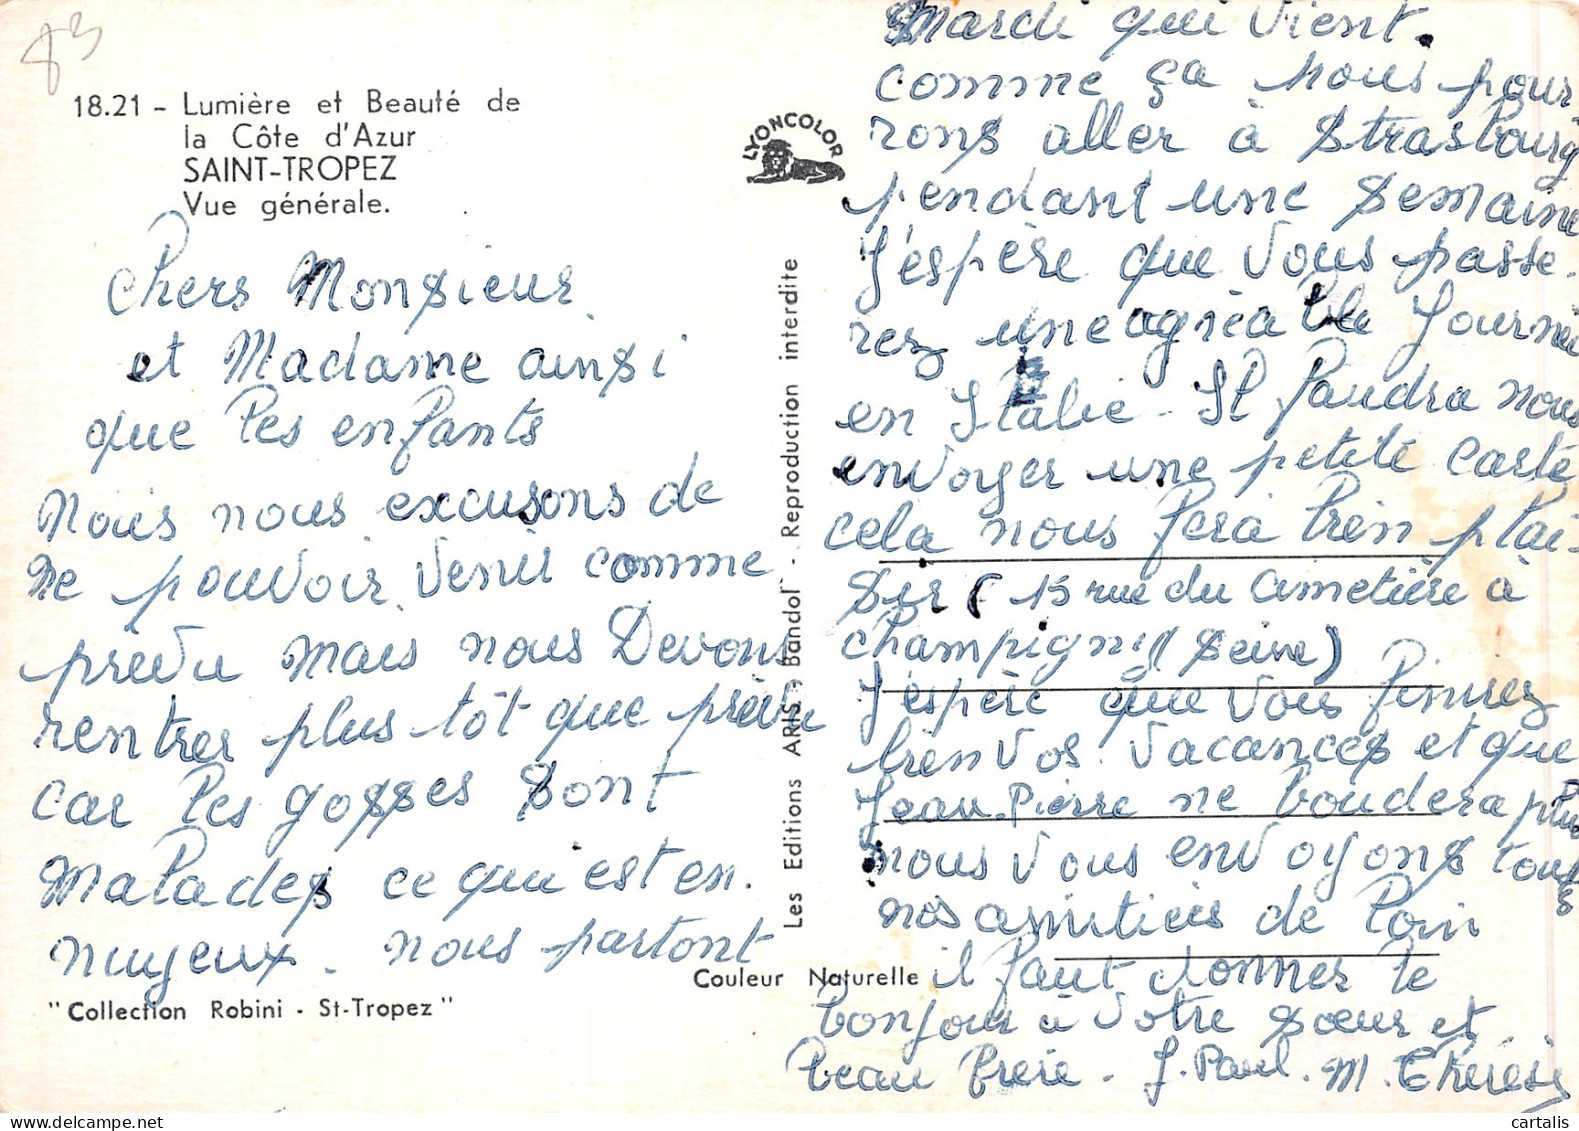 83
18.21 - Lumière et Beauté de
la Côte d'Azur
SAINT-TROPEZ
Vue générale.
LYONCOLOR
Chers Monsieur
et Madame ainsi
que les enfants
Nous nous excusons de
ne pouvoir venir comme
prévu mais nous Devons
rentrer plus tôt que prévu
car les gosses sont
Malades ce qui est en.
nuyeux. nous partont
"Collection Robini - St-Tropez"
Les Editions ARIS - Bandol - Reproduction interdite
Couleur Naturelle
Mardi qui vient.
comme ça nous pour
rons aller à Strasbourg
pendant une semaine
J'espère que vous passe.
rez une agréable Journée
en Italie - Il faudra nous
envoyer une petite carte
cela nous fera bien plai-
sir ( 15 rue du Cimetière à
Champigny (Seine)
J'espère que vous finirez
bien vos vacances et que
Jean-Pierre ne boudera plus
nous vous envoyons tous
nos amitiés de loin
il faut donner le
bonjour à votre sœur et
beau frère - J. Paul. M. Thérèse
cartalis